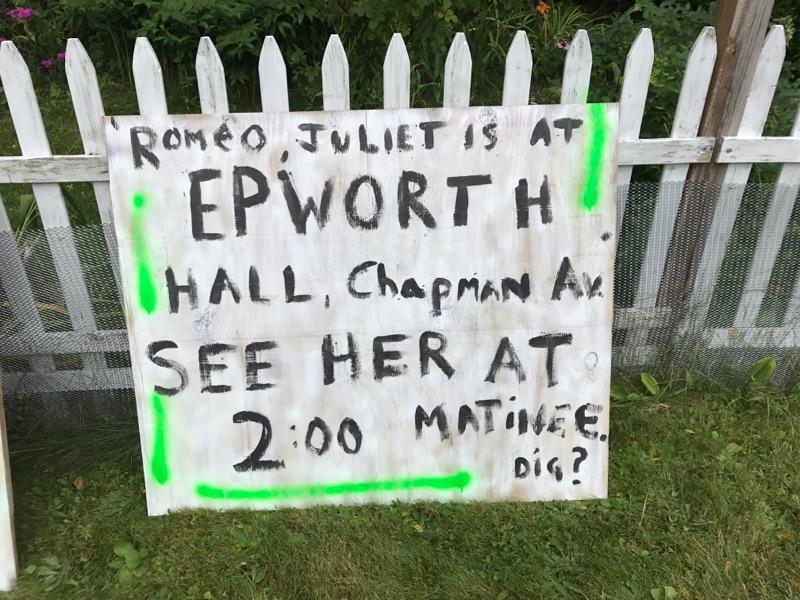 ROMéO, JULIET IS AT
EPWORTH
HALL, Chapman Av.
SEE HER AT
2:00 MATiNEE.
DiG?